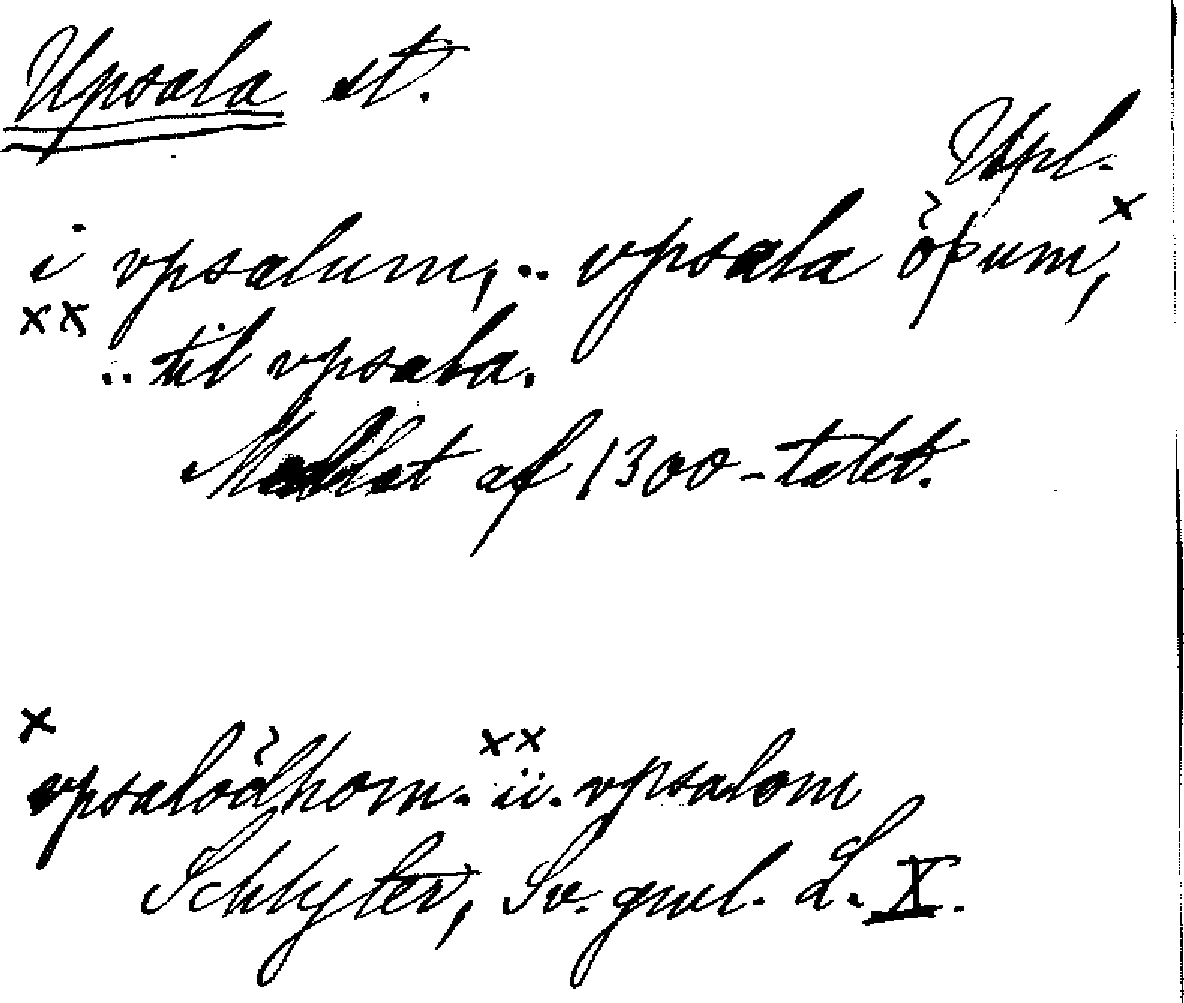 Upsala st.
Upl.
i vpsalum, .. vpsala öþum, x
xx .. til vpsala.
Medlet af 1300-talet.
x vpsalödhom. xx ii. vpsalom
Schlyter, Sv. gml. L. X.